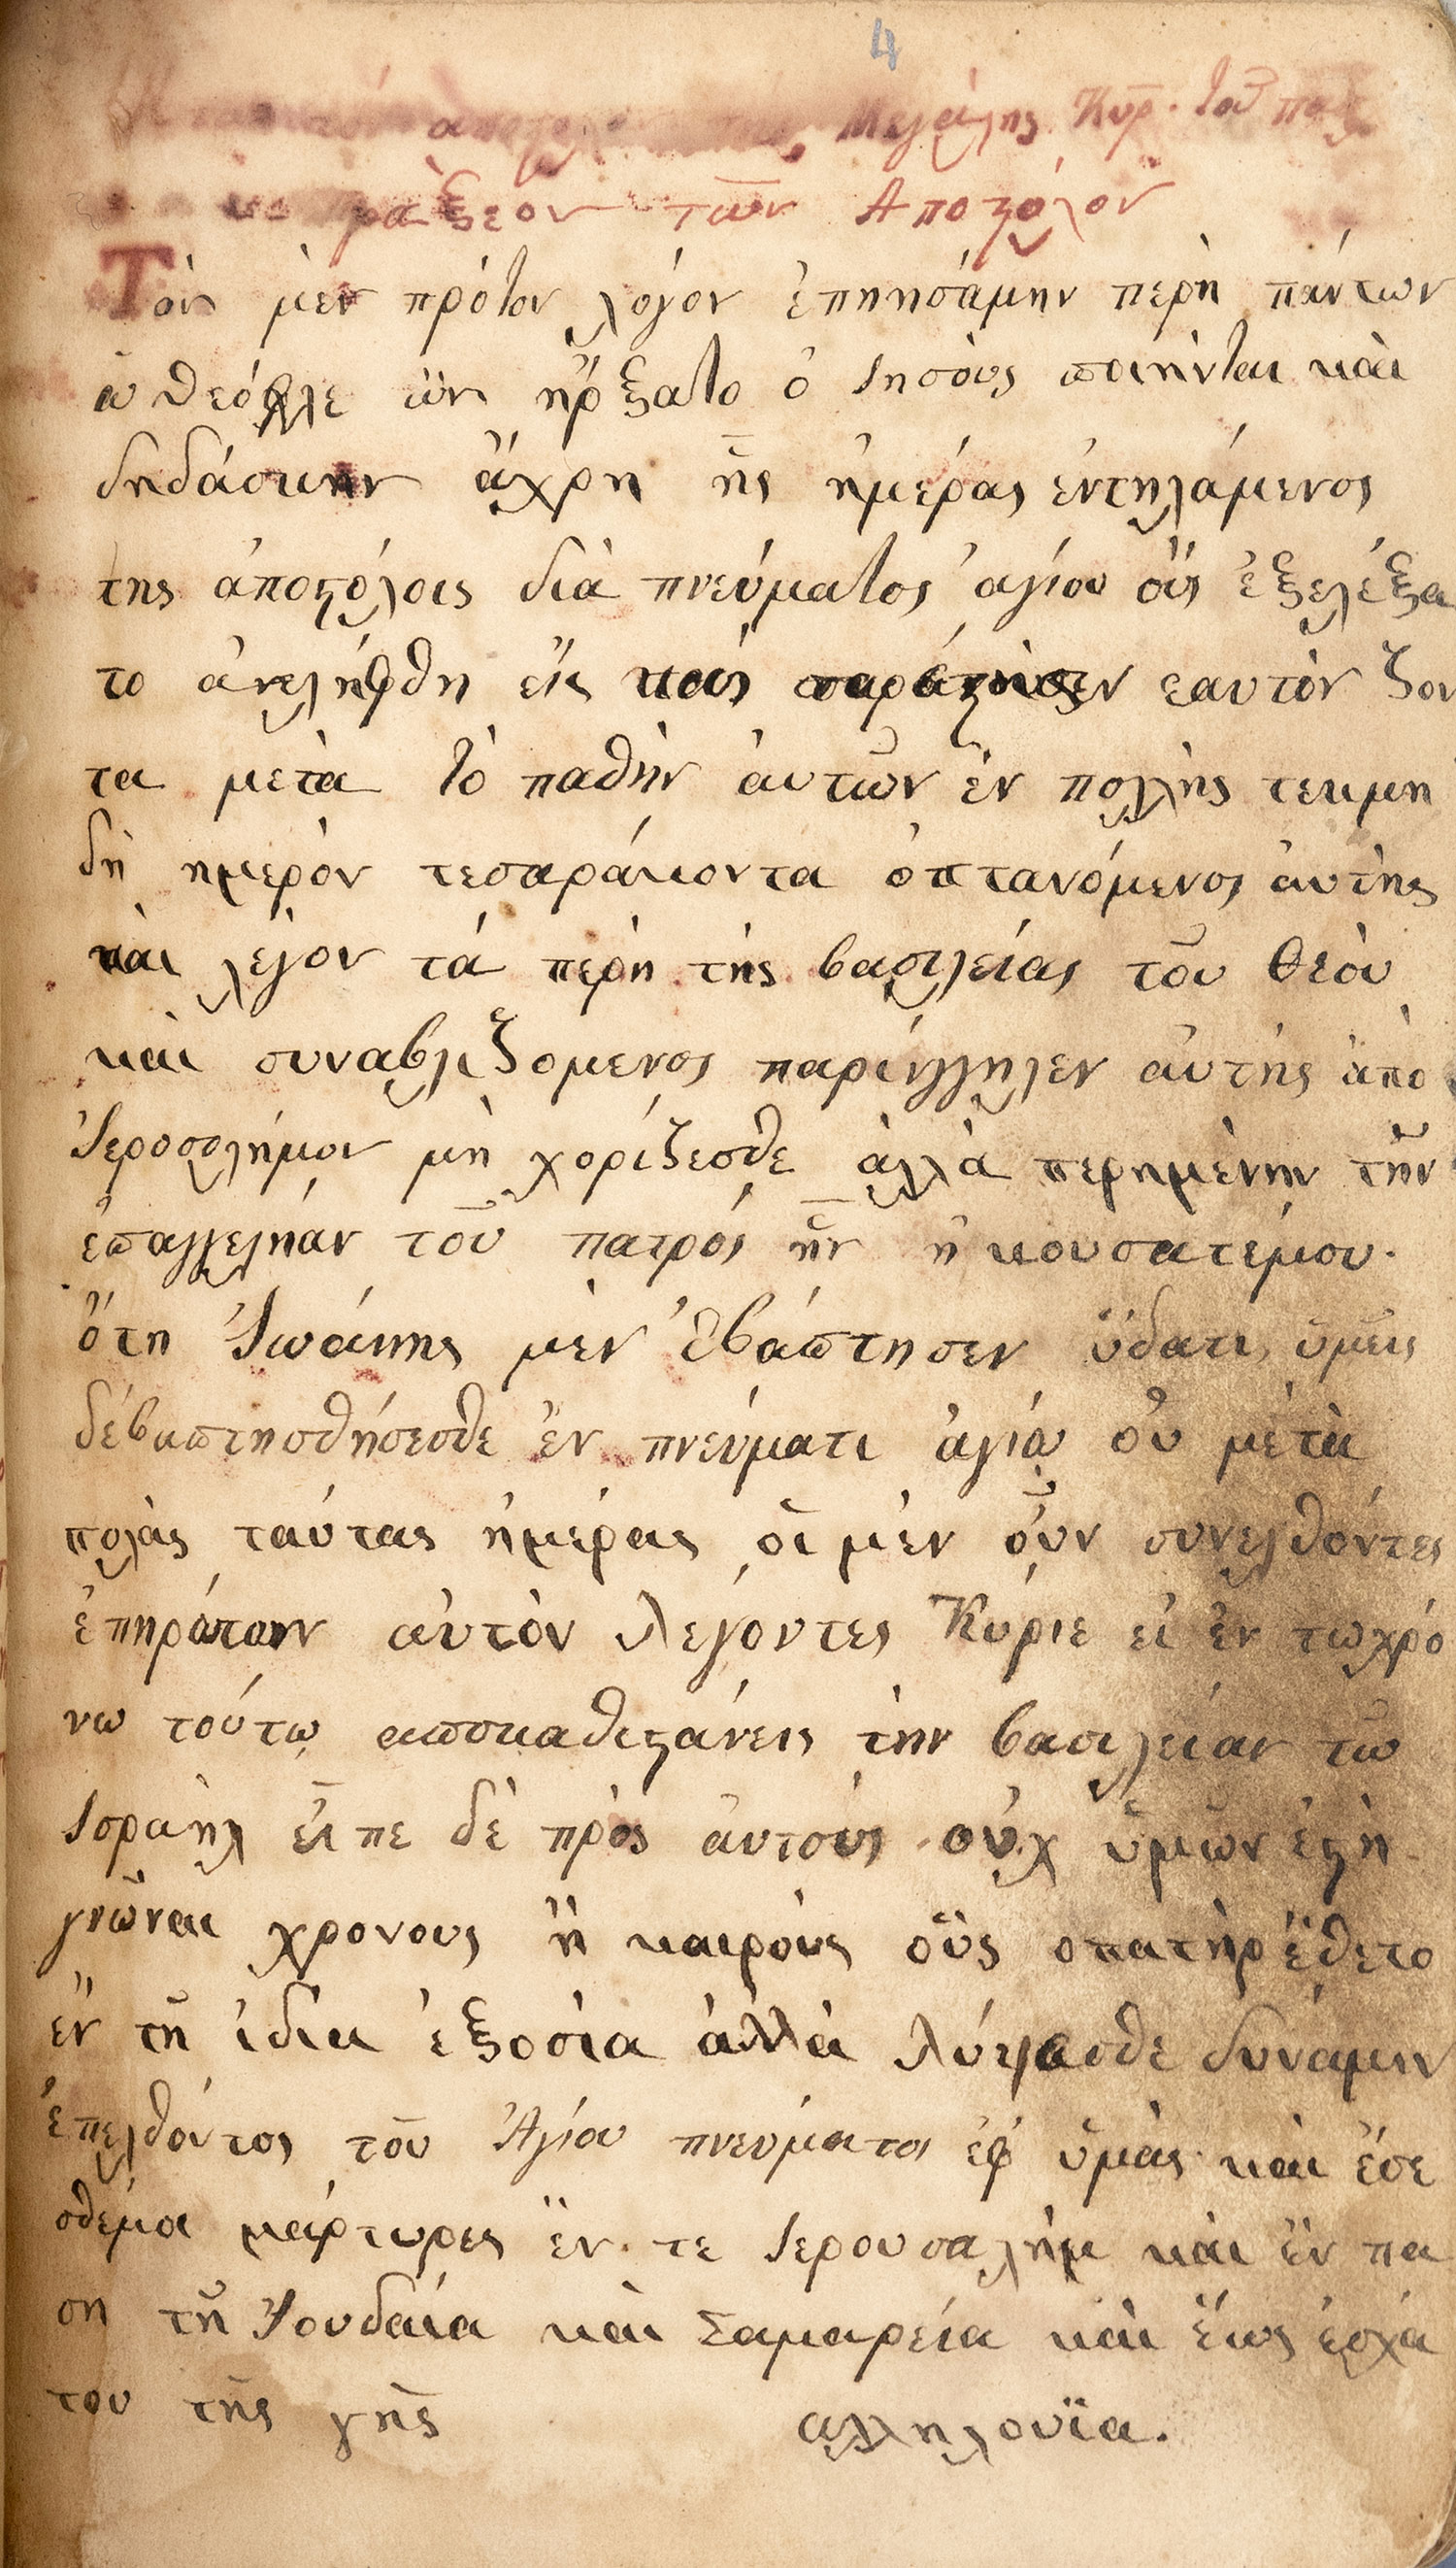 4
Μεγάλης Κυρ. του πασ
των Αποστόλον
Τόν μέν πρότον λόγον ἐπηησάμην περὴ πάντων
ω θεόφηλε ὧν ἤρξατο ὁ Ιησοὺς ποιήνται καὶ
δηδάσκην ἄχρη ἧς ἡμέρας ἐντηλάμενος
της ἀποστόλοις διὰ πνεύματος ἁγίου οὓς ἐξελέξα
το ἀνελήφθη εἰς καὶ παρέστησεν εαυτὸν ζον
τα μετὰ τὸ παθὴν ἀυτῶν ἐν πολλὴς τεκμη
δὴ ημερόν τεσαράκοντα ὀπτανόμενος ἀυτὴς
καὶ λέγον τά περὴ τὴς βασιλείας τοῦ θεόυ
καὶ συναβλιζομενος παρήνγγηλεν ἀυτὴς ἀπο
Ἱεροσολήμον μὴ χορίζεσθε ἀλλὰ περημένην τὴν
ἐπαγγεληάν τοῦ πατρός ἣν ἠκουσατέμου.
ὅτη Ἰωάνης μὲν ἐβάπτησεν ὕδατι, ὑμεῖς
δέβαπτησθήσεσθε ἐν πνεύματι ἁγίῳ ὀυ μετὰ
πολὰς ταύτας ἡμέρας οἱ μὲν οὖν συνελθόντες
ἐπηρότουν αὐτὸν λεγόντες Κύριε εἰ ἐν τω χρό
νω τούτω αποκαθιστάνεις τὴν βασιλείαν τῶ
Ισραὴλ εἶπε δὲ πρὸς ἀυτους οὐχ ὑμῶν ἐστὴ
γνῶναι χρονους ἢ καιρόυς οὓς οπατὴρ ἔθετο
ἐν τῆ ἰδία ἐξοσία ἀλλὰ λύψεσθε δυνάμην
ἐπελθόντος τοῦ Ἁγίου πνευμάτος ἐφ ὑμὰς καὶ ἔσε
σθεμοι μάρτυρες ἔν τε Ιερουσαλὴμ καὶ ἐν πα
ση τῆ Ἰουδαία καὶ Σαμαρεία καὶ ἕως ἐσχά
του τῆς γῆς αλληλουϊα.